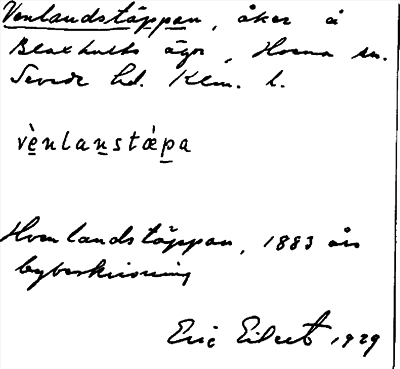 Venlandstäppan, åker å
Blaxhults ägor, Horna sn.
Sevede hd. Klm. l.
vènlanstàpa
Hvenlandstäppan, 1883 års
bybeskrivning
Eric Eilert 1929